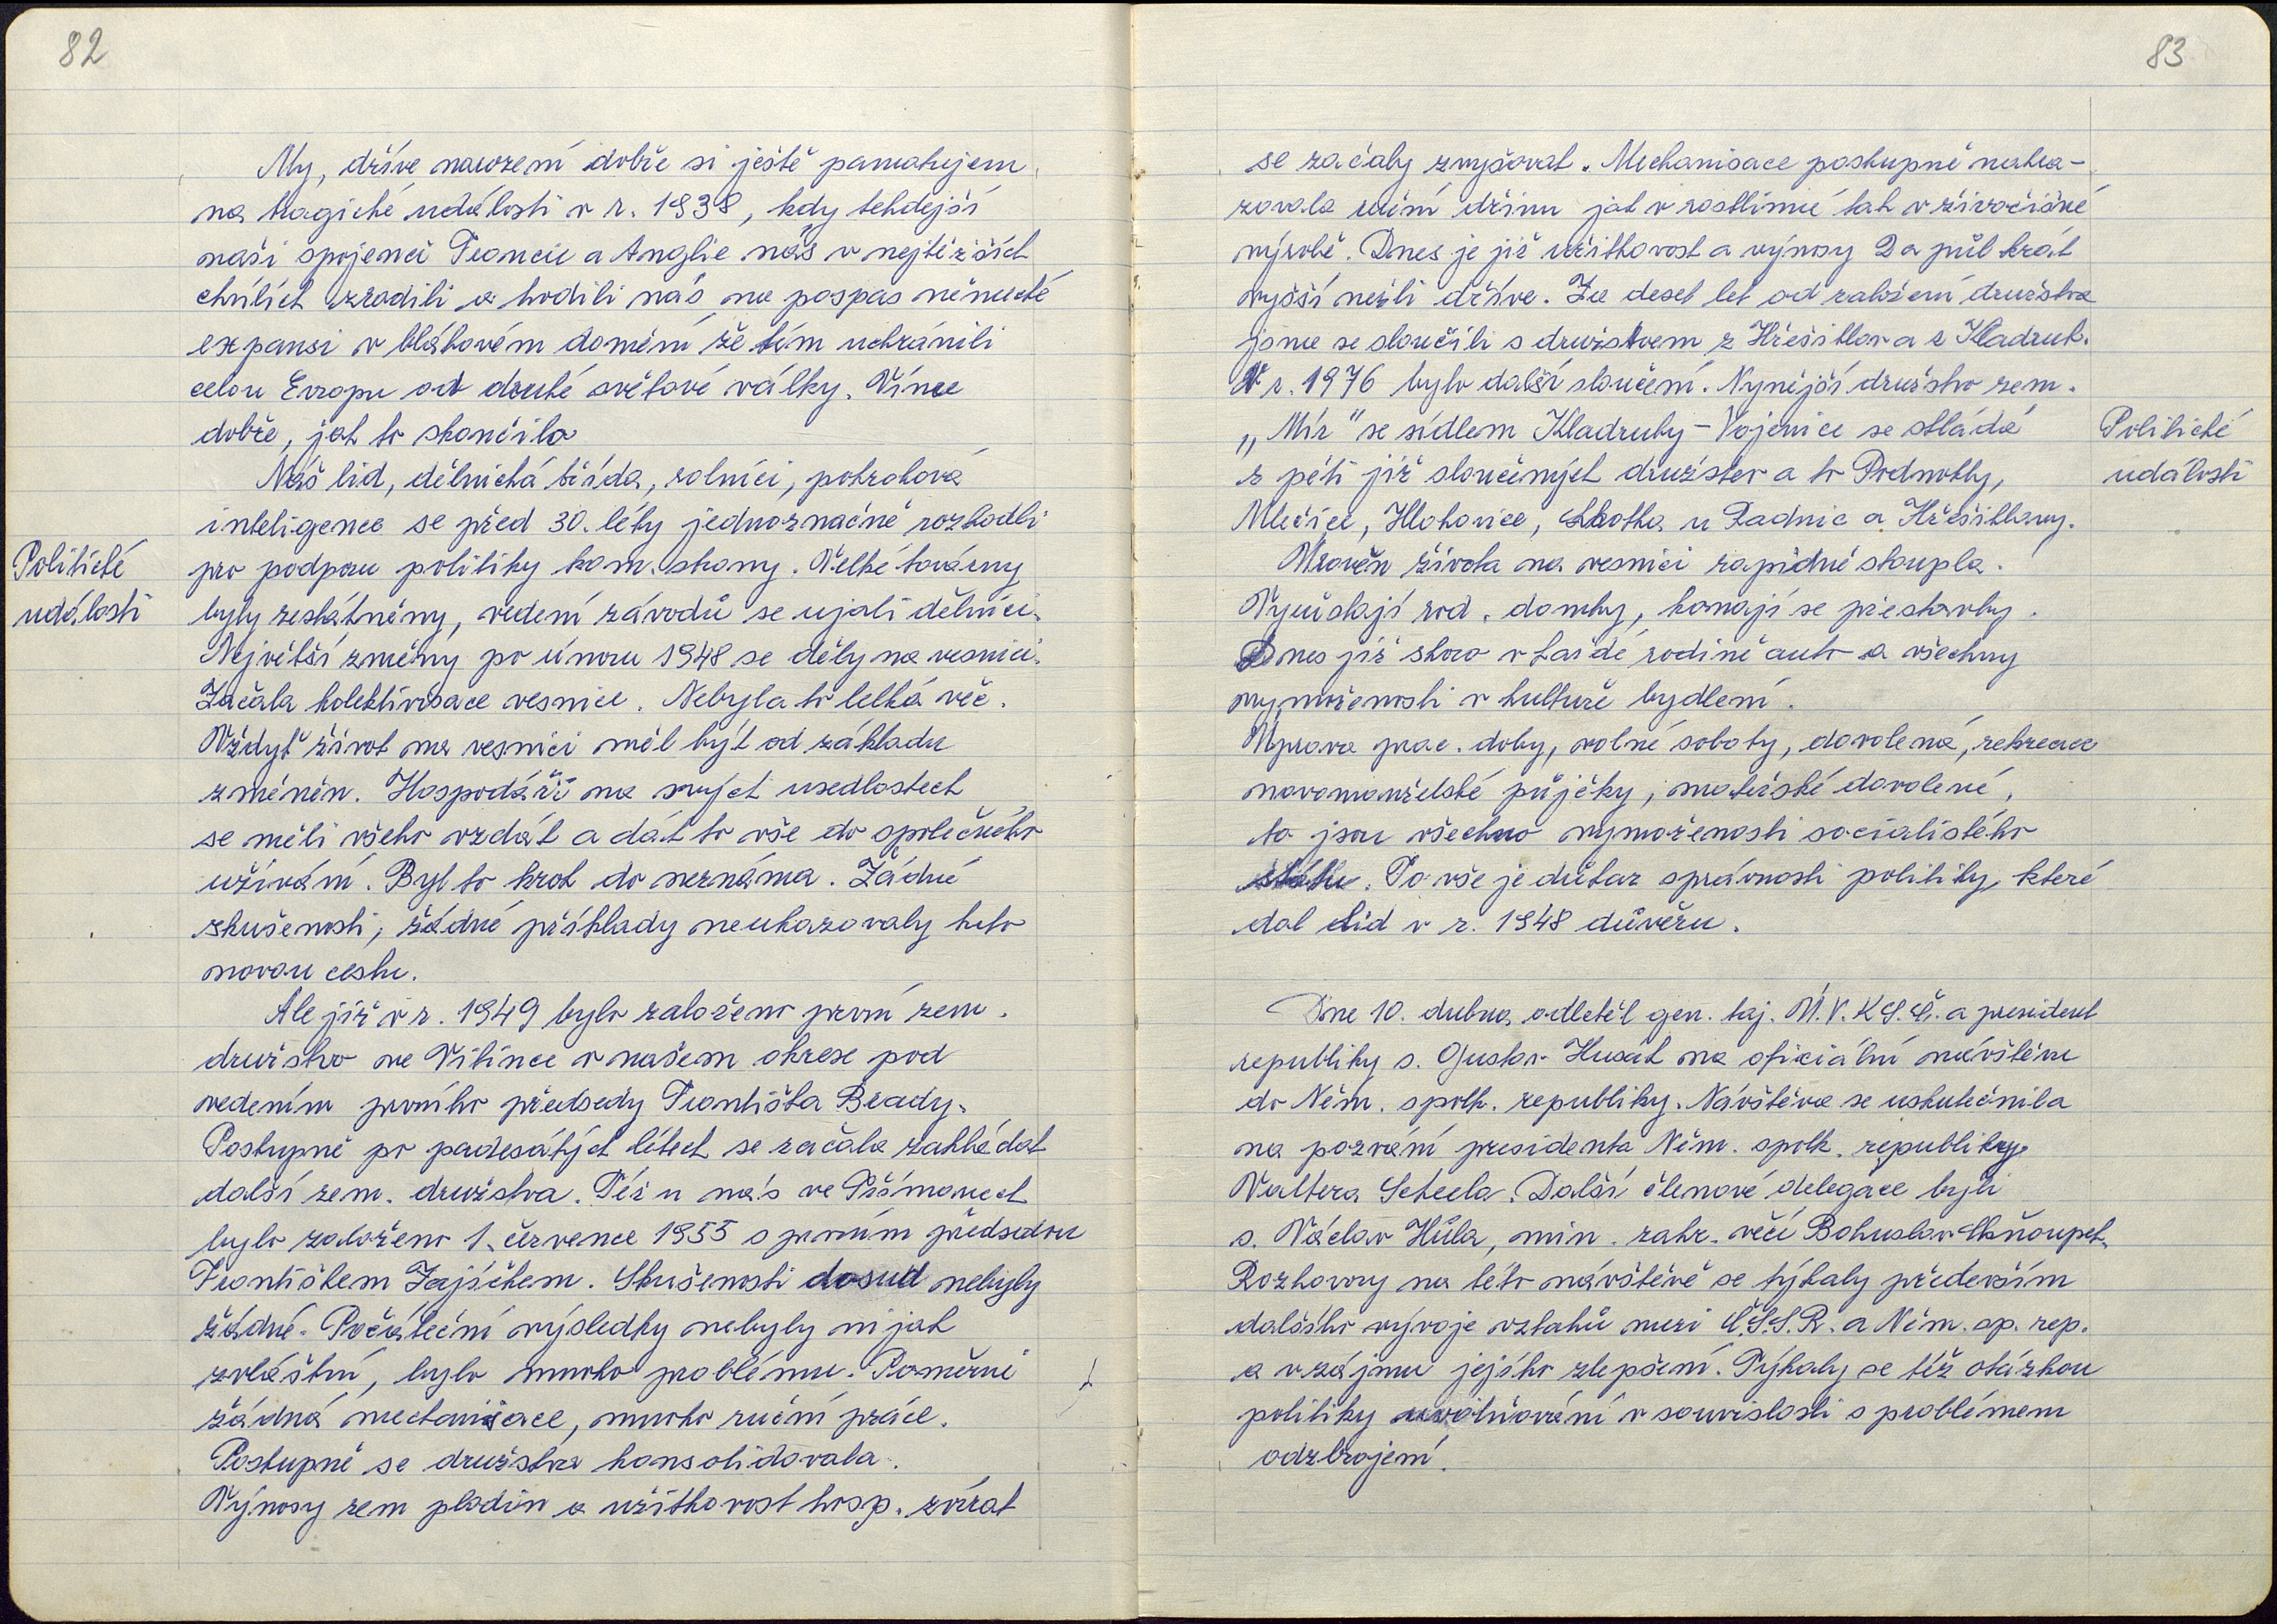 82
My, dříve narození dobře si ještě pamatujem
na tragické události v r. 1938, kdy tehdejší
naši spojenci Francie a Anglie nás v nejtěžších
chvílích zradili a hodili nás na pospas německé
expansi v bláhovém domění že tím uchránili
celou Evropu od druhé světové války. Víme
dobře, jak to skončilo
Náš lid, dělnická třída, rolníci, pokroková
inteligence se před 30. léty jednoznačně rozhodli
Politické
pro podporu politiky kom. strany. Velké továrny
události
byly zestátněny, vedení závodů se ujali dělníci.
Největší změny po únoru 1948 se děly na vesnici.
Začala kolektivisace vesnice. Nebyla to lehká věc.
Vždyť život na vesnici měl být od základu
změněn. Hospodáři na svých usedlostech
se měli všeho vzdát a dát to vše do společného
užívání. Byl to krok do neznáma. Žádné
zkušenosti, žádné příklady neukazovaly tuto
novou cestu.
Ale již v r. 1949 bylo založeno první zem.
družstvo ve Vitince v našem okrese pod
vedením prvního předsedy Františka Brady.
Postupně po padesátých létech se začala zakládat
další zem. družstva. Též u nás ve Přímanech
bylo založeno 1. července 1955 s prvním předsedou
Františkem Zajíčkem. Skušenosti dosud nebyly
žádné. Počáteční výsledky nebyly nijak
zvláštní, bylo mnoho problému. Poměrně
žádná mechanisace, mnoho ruční práce.
Postupně se družstva konsolidovala.
Výnosy zem plodin a užitkovost hosp. zvířat
83
se začaly zvyšovat. Mechanisace postupně nahra-
zovala ruční dřinu jak v rostlinné tak v živočišné
výrobě. Dnes je již užitkovost a výnosy 2 a půl krát
vyšší nežli dříve. Za deset let od založení družstva
jsme se sloučili s družstvem z Hřešihlav a z Kladrub.
V r. 1976 bylo další sloučení. Nynější družstvo zem.
„Mír" se sídlem Kladruby - Vojenice se skládá
Politické
z pěti již sloučených družstev a to Podmokly,
události
Mlečice, Hlohovice, Lhotka u Radnic a Hřešihlavy.
Úroveň života na vesnici rapidně stoupla.
Vyrůstají rod. domky, konají se přestavby.
Dnes již skoro v každé rodině auto a všechny
vymoženosti v kultuře bydlení.
Úprava prac. doby, volné soboty, dovolená, rekreace
novomanželské půjčky, mateřské dovolené,
to jsou všechno vymoženosti socialistého
státu. To vše je důkaz správnosti politiky, které
dal lid v r. 1948 důvěru.
Dne 10. dubna odletěl gen. taj. Ú.V.K.S.Č. a president
republiky s. Gustav Husák na oficiální návštěvu
do Něm. spolk. republiky. Návštěva se uskutečnila
na pozvání presidenta Něm. spolk. republiky
Waltera Scheela. Další členové delegace byli
s. Václav Hůla, min. zahr. věcí Bohuslav Chňoupek.
Rozhovory na této návštěvě se týkaly především
dalšího vývoje vztahů mezi Č.S.S.R. a Něm. sp. rep.
a v zájmu jejího zlepšení. Týkaly se též otázkou
politiky uvolňování v souvislosti s problémem
odzbrojení.